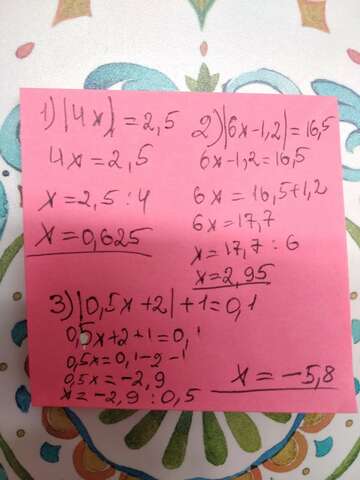 1) |4x| = 2,5
4x = 2,5
x = 2,5 : 4
x = 0,625
2) |6x-1,2| = 16,5
6x-1,2 = 16,5
6x = 16,5+1,2
6x = 17,7
x = 17,7 : 6
x = 2,95
3) |0,5x+2| + 1 = 0,1
0,5x+2+1 = 0,1
0,5x = 0,1-2-1
0,5x = -2,9
x = -2,9 : 0,5
x = -5,8